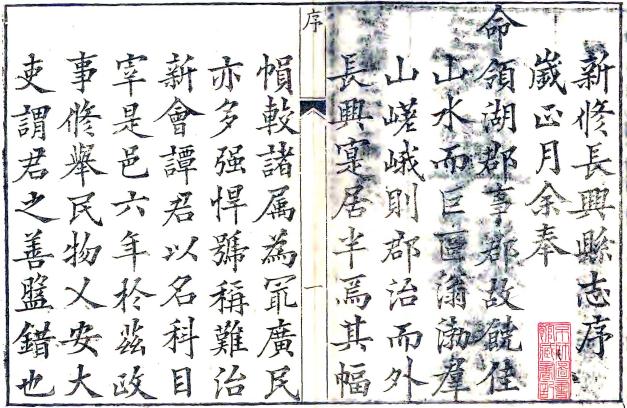 新修長興縣志序
嵗正月余奉
命領湖郡事郡故饒佳
山水而巨區滃渤羣
山嵯峨則郡治而外
長興寔居半焉其幅
序
一
幁較諸属為冣廣民
亦多强悍號稱難治
新會譚君以名科目
宰是邑六年於茲政
事修舉民物乂安大
吏謂君之善盤錯也